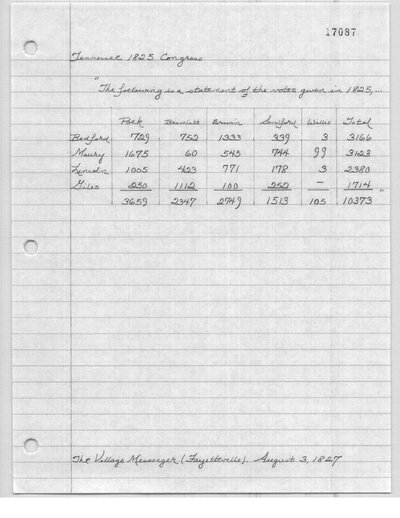 17087
Tennessee 1825 Congress
"The following is a statement of the votes given in 1825, ...
Polk Burnett Erwin Sandford Willis Total
Bedford 729 752 1333 339 3 3156
Maury 1675 60 545 744 99 3123
Lincoln 1005 423 771 178 3 2380
Giles 250 1112 100 252 — 1714
3659 2347 2749 1513 105 10373 "
The Village Messenger (Fayetteville). August 3, 1827